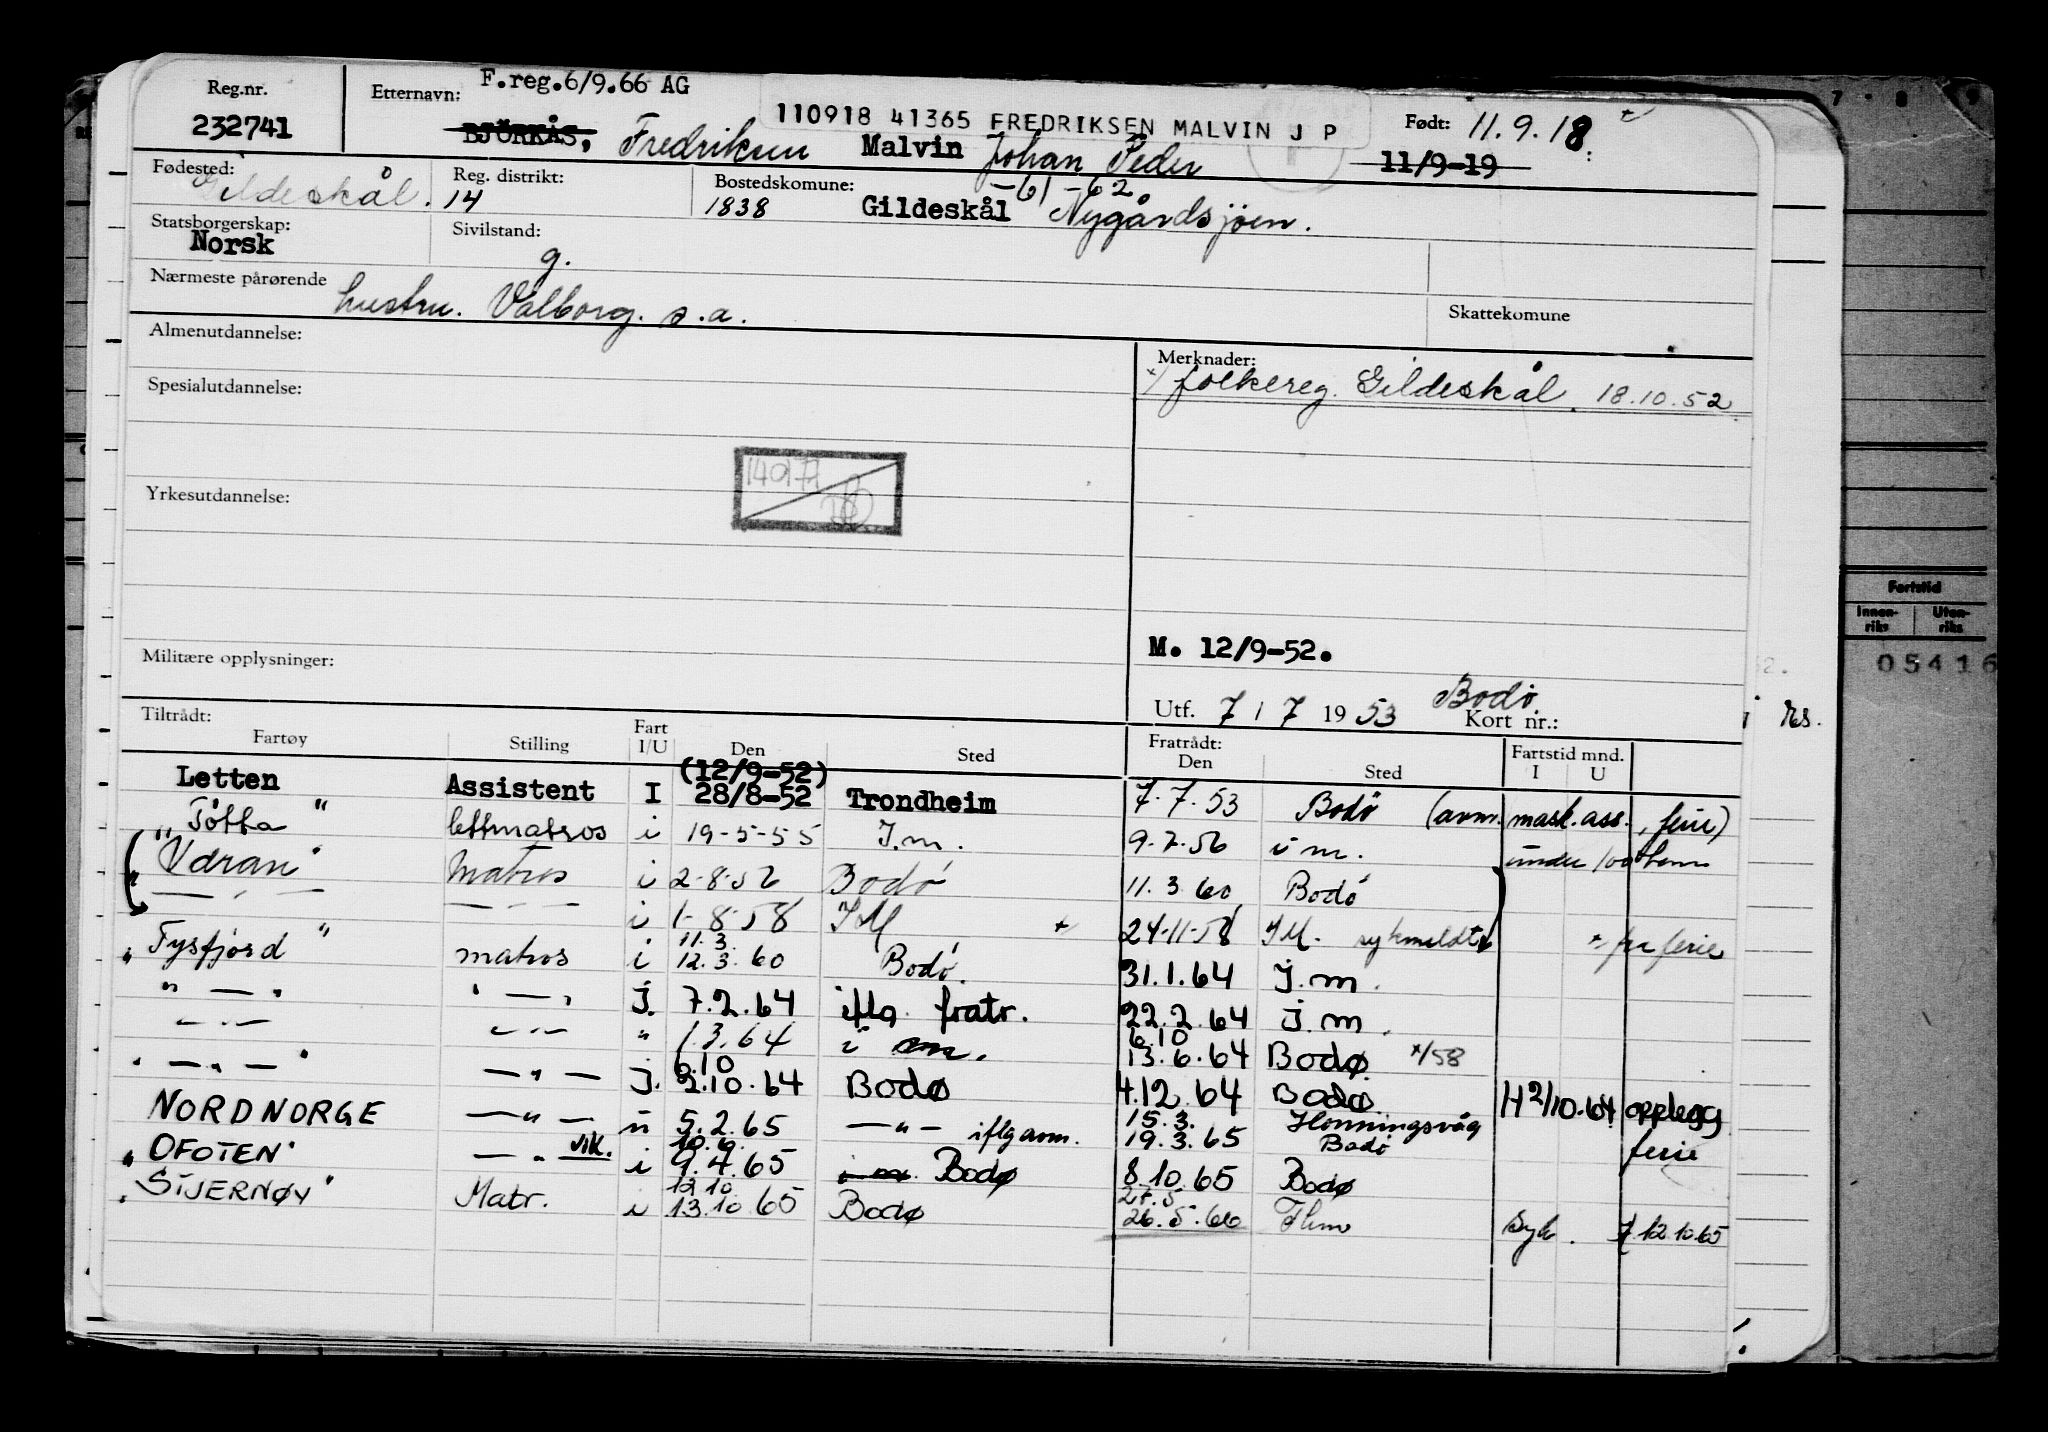 Reg.nr. Etternavn: F.reg.6/9.66 AG
110918 41365 FREDRIKSEN MALVIN J P Født: 11.9.18
232741 BJÖRKÅS, Fredriksen Malvin Johan Peder 11/9-19
Fødested: Reg. distrikt: Bostedskomune: -61-62
Gildeskål. 14 1838 Gildeskål Nygårdsjøen.
Statsborgerskap: Sivilstand:
Norsk g.
Nærmeste pårørende hustru. Valborg. s.a.
Skattekomune
Almenutdannelse: Merknader:
x/ folkereg. Gildeskål. 18.10.52
Spesialutdannelse:
Yrkesutdannelse:
M. 12/9-52.
Militære opplysninger:
Utf. 7 / 7 19 53 Bodø Kort nr.:
Tiltrådt: Fart Fratrådt: Fartstid mnd.
Fartøy Stilling I/U Den Sted Den Sted I U
(12/9-52)
Letten Assistent I 28/8-52 Trondheim 7.7.53 Bodø (avm. mask.ass., ferie)
"Tøtta" lettmatros i 19-5-55 I.m. 9.7.56 i m. under 100
"Væran" Matros i 2-8-56 Bodø 11.3.60 Bodø
— " — — " — i 1-8-58 I M x 24-11-58 I M. sykmeldt x fra ferie
11.3.
"Tysfjord" matros i 12.3.60 Bodø. 31.1.64 I.m.
" — " " — " I. 7.2.64 iflg fratr. 22.2.64 I.m.
6.10
— " — — " — " 1.3.64 i m. 13.6.64 Bodø x/58
6.10
" — " — " — " — I. 2.10.64 Bodø 4.12.64 Bodø H 2/10.64 opplegg
15.3.
NORDNORGE — " — u 5.2.65 — " — iflg avm. 19.3.65 Honningsvåg Bodø ferie
10.6.
"OFOTEN" — " — vik. i 9.4.65 Bodø 8.10.65 Bodø
12.10 27.5
"STJERNØY" Matr. i 13.10.65 Bodø 26.5.66 Thm Syk. 12.10.65
7 8 9
Fartstid
Innen-riks Uten-riks
05416